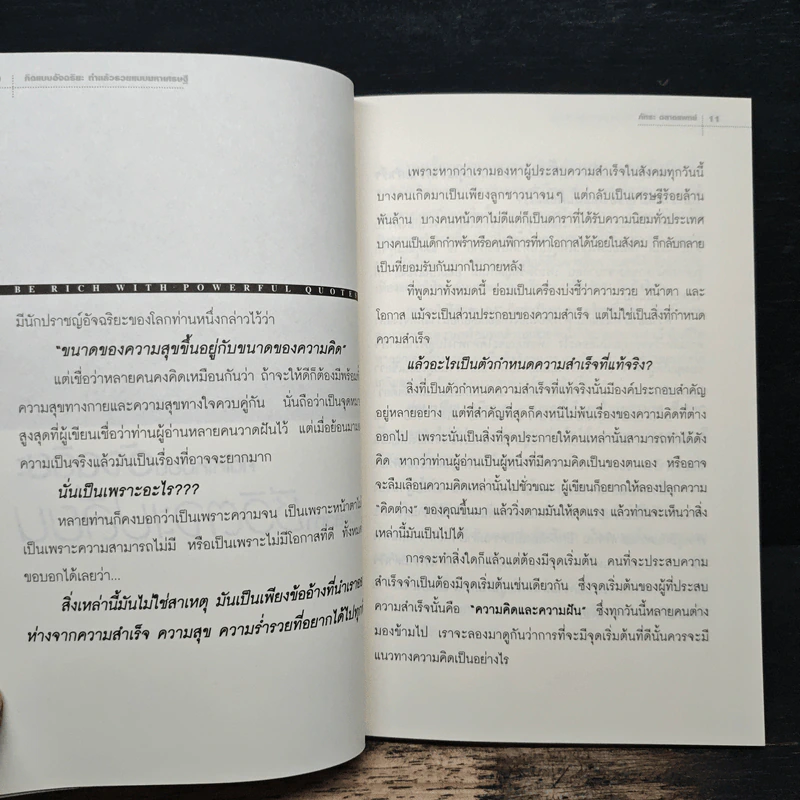 คิดแบบอัจฉริยะ ทำแล้วรวยแบบมหาเศรษฐี
BE RICH WITH POWERFUL QUOTE
มีนักปราชญ์อัจฉริยะของโลกท่านหนึ่งกล่าวไว้ว่า
"ขนาดของความสุขขึ้นอยู่กับขนาดของความคิด"
แต่เชื่อว่าหลายคนคงคิดเหมือนกันว่า ถ้าจะให้ดีก็ต้องมีพร้อมทั้ง
ความสุขทางกายและความสุขทางใจควบคู่กัน นั่นถือว่าเป็นจุดหมาย
สูงสุดที่ผู้เขียนเชื่อว่าท่านผู้อ่านหลายคนวาดฝันไว้ แต่เมื่อย้อนมามอง
ความเป็นจริงแล้วมันเป็นเรื่องที่อาจจะยากมาก
นั่นเป็นเพราะอะไร???
หลายท่านก็คงบอกว่าเป็นเพราะความจน เป็นเพราะหน้าตาไม่
เป็นเพราะความสามารถไม่มี หรือเป็นเพราะไม่มีโอกาสที่ดี ทั้งหมด
ขอบอกได้เลยว่า...
สิ่งเหล่านี้มันไม่ใช่สาเหตุ มันเป็นเพียงข้ออ้างที่นำเราออก
ห่างจากความสำเร็จ ความสุข ความร่ำรวยที่อยากได้ไปทุกที
11
เพราะหากว่าเรามองหาผู้ประสบความสำเร็จในสังคมทุกวันนี้
บางคนเกิดมาเป็นเพียงลูกชาวนาจนๆ แต่กลับเป็นเศรษฐีร้อยล้าน
พันล้าน บางคนหน้าตาไม่ดีแต่ก็เป็นดาราที่ได้รับความนิยมทั่วประเทศ
บางคนเป็นเด็กกำพร้าหรือคนพิการที่หาโอกาสได้น้อยในสังคม ก็กลับกลาย
เป็นที่ยอมรับกันมากในภายหลัง
ที่พูดมาทั้งหมดนี้ ย่อมเป็นเครื่องบ่งชี้ว่าความรวย หน้าตา และ
โอกาส แม้จะเป็นส่วนประกอบของความสำเร็จ แต่ไม่ใช่เป็นสิ่งที่กำหนด
ความสำเร็จ
แล้วอะไรเป็นตัวกำหนดความสำเร็จที่แท้จริง?
สิ่งที่เป็นตัวกำหนดความสำเร็จที่แท้จริงนั้นมีองค์ประกอบสำคัญ
อยู่หลายอย่าง แต่ที่สำคัญที่สุดก็คงหนีไม่พ้นเรื่องของความคิดที่ต่าง
ออกไป เพราะนั่นเป็นสิ่งที่จุดประกายให้คนเหล่านั้นสามารถทำได้ดัง
คิด หากว่าท่านผู้อ่านเป็นผู้หนึ่งที่มีความคิดเป็นของตนเอง หรืออาจ
จะลืมเลือนความคิดเหล่านั้นไปชั่วขณะ ผู้เขียนก็อยากให้ลองปลุกความ
"คิดต่าง" ของคุณขึ้นมา แล้ววิ่งตามมันให้สุดแรง แล้วท่านจะเห็นว่าสิ่ง
เหล่านี้มันเป็นไปได้
การจะทำสิ่งใดก็แล้วแต่ต้องมีจุดเริ่มต้น คนที่จะประสบความ
สำเร็จจำเป็นต้องมีจุดเริ่มต้นเช่นเดียวกัน ซึ่งจุดเริ่มต้นของผู้ที่ประสบ
ความสำเร็จนั้นคือ "ความคิดและความฝัน" ซึ่งทุกวันนี้หลายคนต่าง
มองข้ามไป เราจะลองมาดูกันว่าการที่จะมีจุดเริ่มต้นที่ดีนั้นควรจะมี
แนวทางความคิดเป็นอย่างไร